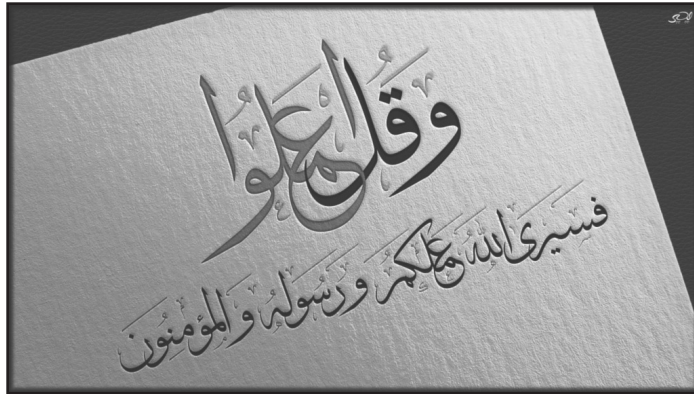 وَقُلِ اعْمَلُوا
فَسَيَرَى اللَّهُ عَمَلَكُمْ وَرَسُولُهُ وَالْمُؤْمِنُونَ